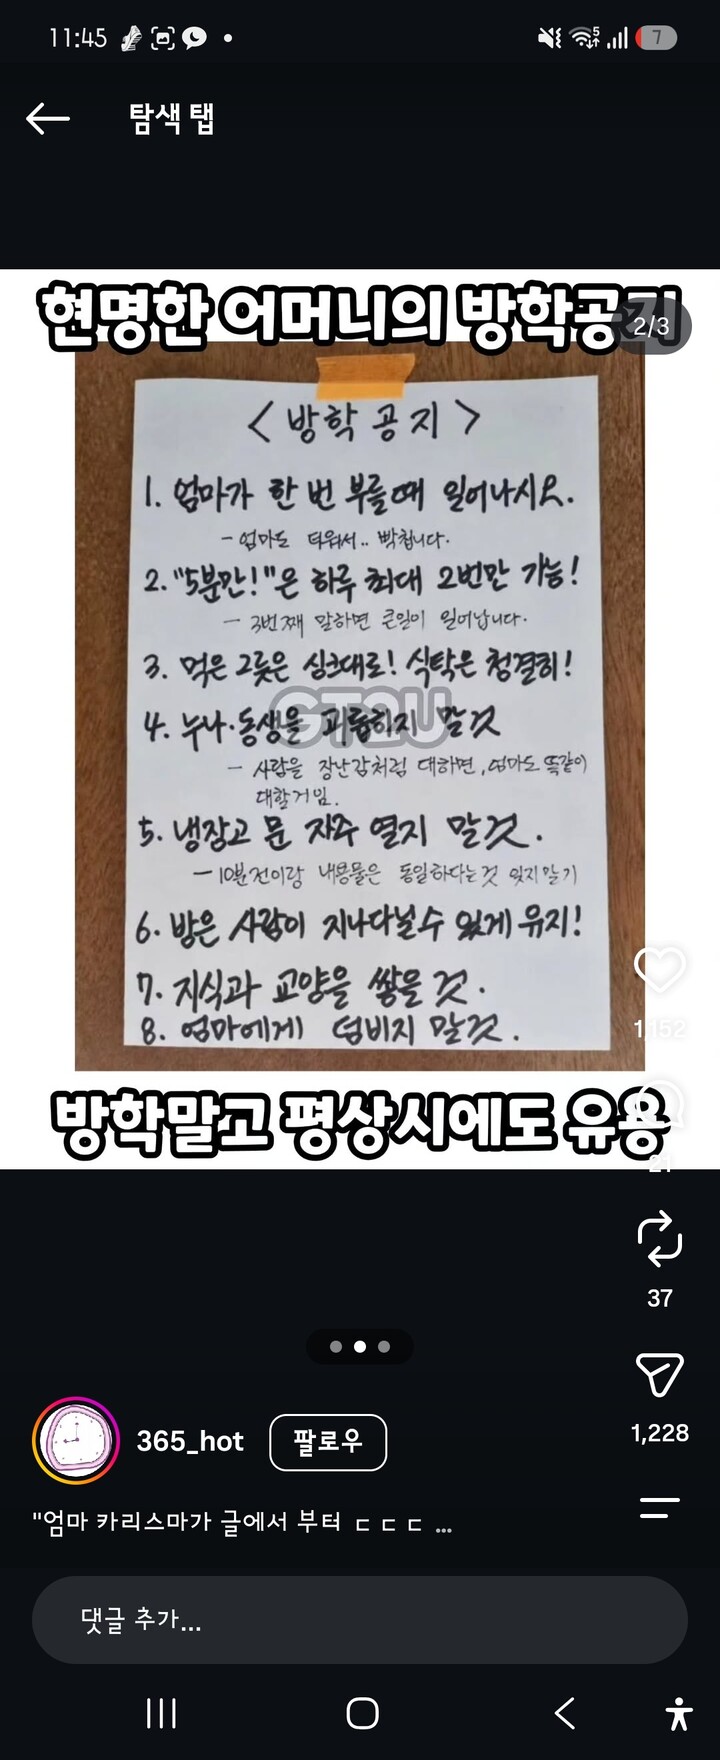 11:45
7
탐색 탭
현명한 어머니의 방학공지
2/3
<방학 공지>
1. 엄마가 한 번 부를때 일어나시오.
- 엄마도 더워서.. 빡칩니다.
2. "5분만!"은 하루 최대 2번만 가능!
- 3번째 말하면 큰일이 일어납니다.
3. 먹은 그릇은 싱크대로! 식탁은 청결히!
GT2U
4. 누나·동생을 괴롭히지 말것
- 사람을 장난감처럼 대하면, 엄마도 똑같이
대할거임.
5. 냉장고 문 자주 열지 말것.
- 10분전이랑 내용물은 동일하다는것 잊지말기
6. 방은 사람이 지나다닐수 있게 유지!
7. 지식과 교양을 쌓을 것.
8. 엄마에게 덤비지 말것.
1,152
방학말고 평상시에도 유용
21
37
1,228
365_hot
팔로우
"엄마 카리스마가 글에서 부터 ㄷㄷㄷ ...
댓글 추가...